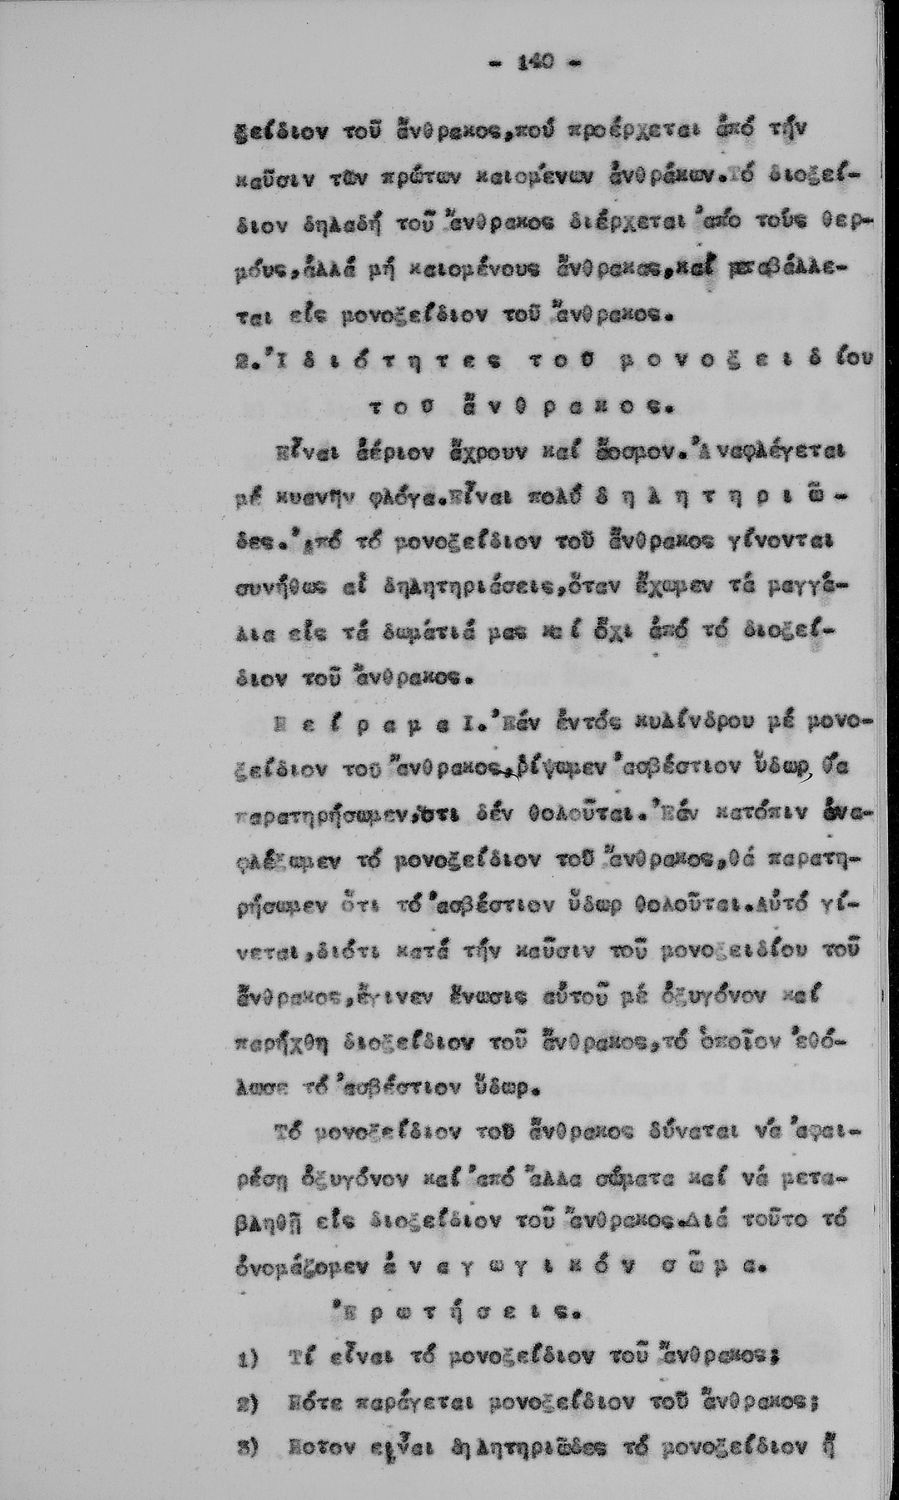 - 140 -
ξείδιον τοῦ ἄνθρακος,πού προέρχεται ἀπό τήν
καῦσιν τῶν πρώτων καιομένων ἀνθράκων.Τό διοξεί-
διον δηλαδή τοῦ ἄνθρακος διέρχεται ἀπό τούς θερ-
μούς,ἀλλά μή καιομένους ἄνθρακας,καί μεταβάλλε-
ται εἰς μονοξείδιον τοῦ ἄνθρακος.
2.Ἰ δ ι ό τ η τ ε ς τ ο ῦ μ ο ν ο ξ ε ι δ ίου
τ ο ῦ ἄ ν θ ρ α κ ο ς.
Εἶναι ἀέριον ἄχρουν καί ἄοσμον.Ἀναφλέγεται
μέ κυανῆν φλόγα.Εἶναι πολύ δ η λ η τ η ρ ι ῶ -
δες.Ἀπό τό μονοξείδιον τοῦ ἄνθρακος γίνονται
συνήθως αἱ δηλητηριάσεις,ὅταν ἔχωμεν τά μαγγά-
λια εἰς τά δωμάτιά μας καί ὄχι ἀπό τό διοξεί-
διον τοῦ ἄνθρακος.
Π ε ί ρ α μ α Ι.Ἐάν ἐντός κυλίνδρου μέ μονο-
ξείδιον τοῦ ἄνθρακος,ρίψωμεν ἀσβέστιον ὕδωρ, θά
παρατηρήσωμεν,ὅτι δέν θολοῦται.Ἐάν κατόπιν ἀνα-
φλέξωμεν τό μονοξείδιον τοῦ ἄνθρακος,θά παρατη-
ρήσωμεν ὅτι τό ἀσβέστιον ὕδωρ θολοῦται.Αὐτό γί-
νεται,διότι κατά τήν καῦσιν τοῦ μονοξειδίου τοῦ
ἄνθρακος,ἔγινεν ἕνωσις αὐτοῦ μέ ὀξυγόνον καί
παρήχθη διοξείδιον τοῦ ἄνθρακος,τό ὁποῖον ἐθό-
λωσε τό ἀσβέστιον ὕδωρ.
Τό μονοξείδιον τοῦ ἄνθρακος δύναται νά ἀφαι-
ρέση ὀξυγόνον καί ἀπό ἄλλα σώματα καί νά μετα-
βληθῇ εἰς διοξείδιον τοῦ ἄνθρακος.Διά τοῦτο τό
ὀνομάζομεν ἀ ν α γ ω γ ι κ ό ν σ ῶ μ α.
Ἐ ρ ω τ ή σ ε ι ς.
1) Τί εἶναι τό μονοξείδιον τοῦ ἄνθρακος;
2) Πότε παράγεται μονοξείδιον τοῦ ἄνθρακος;
3) Ποῖον εἶναι δηλητηριῶδες τό μονοξείδιον ἤ